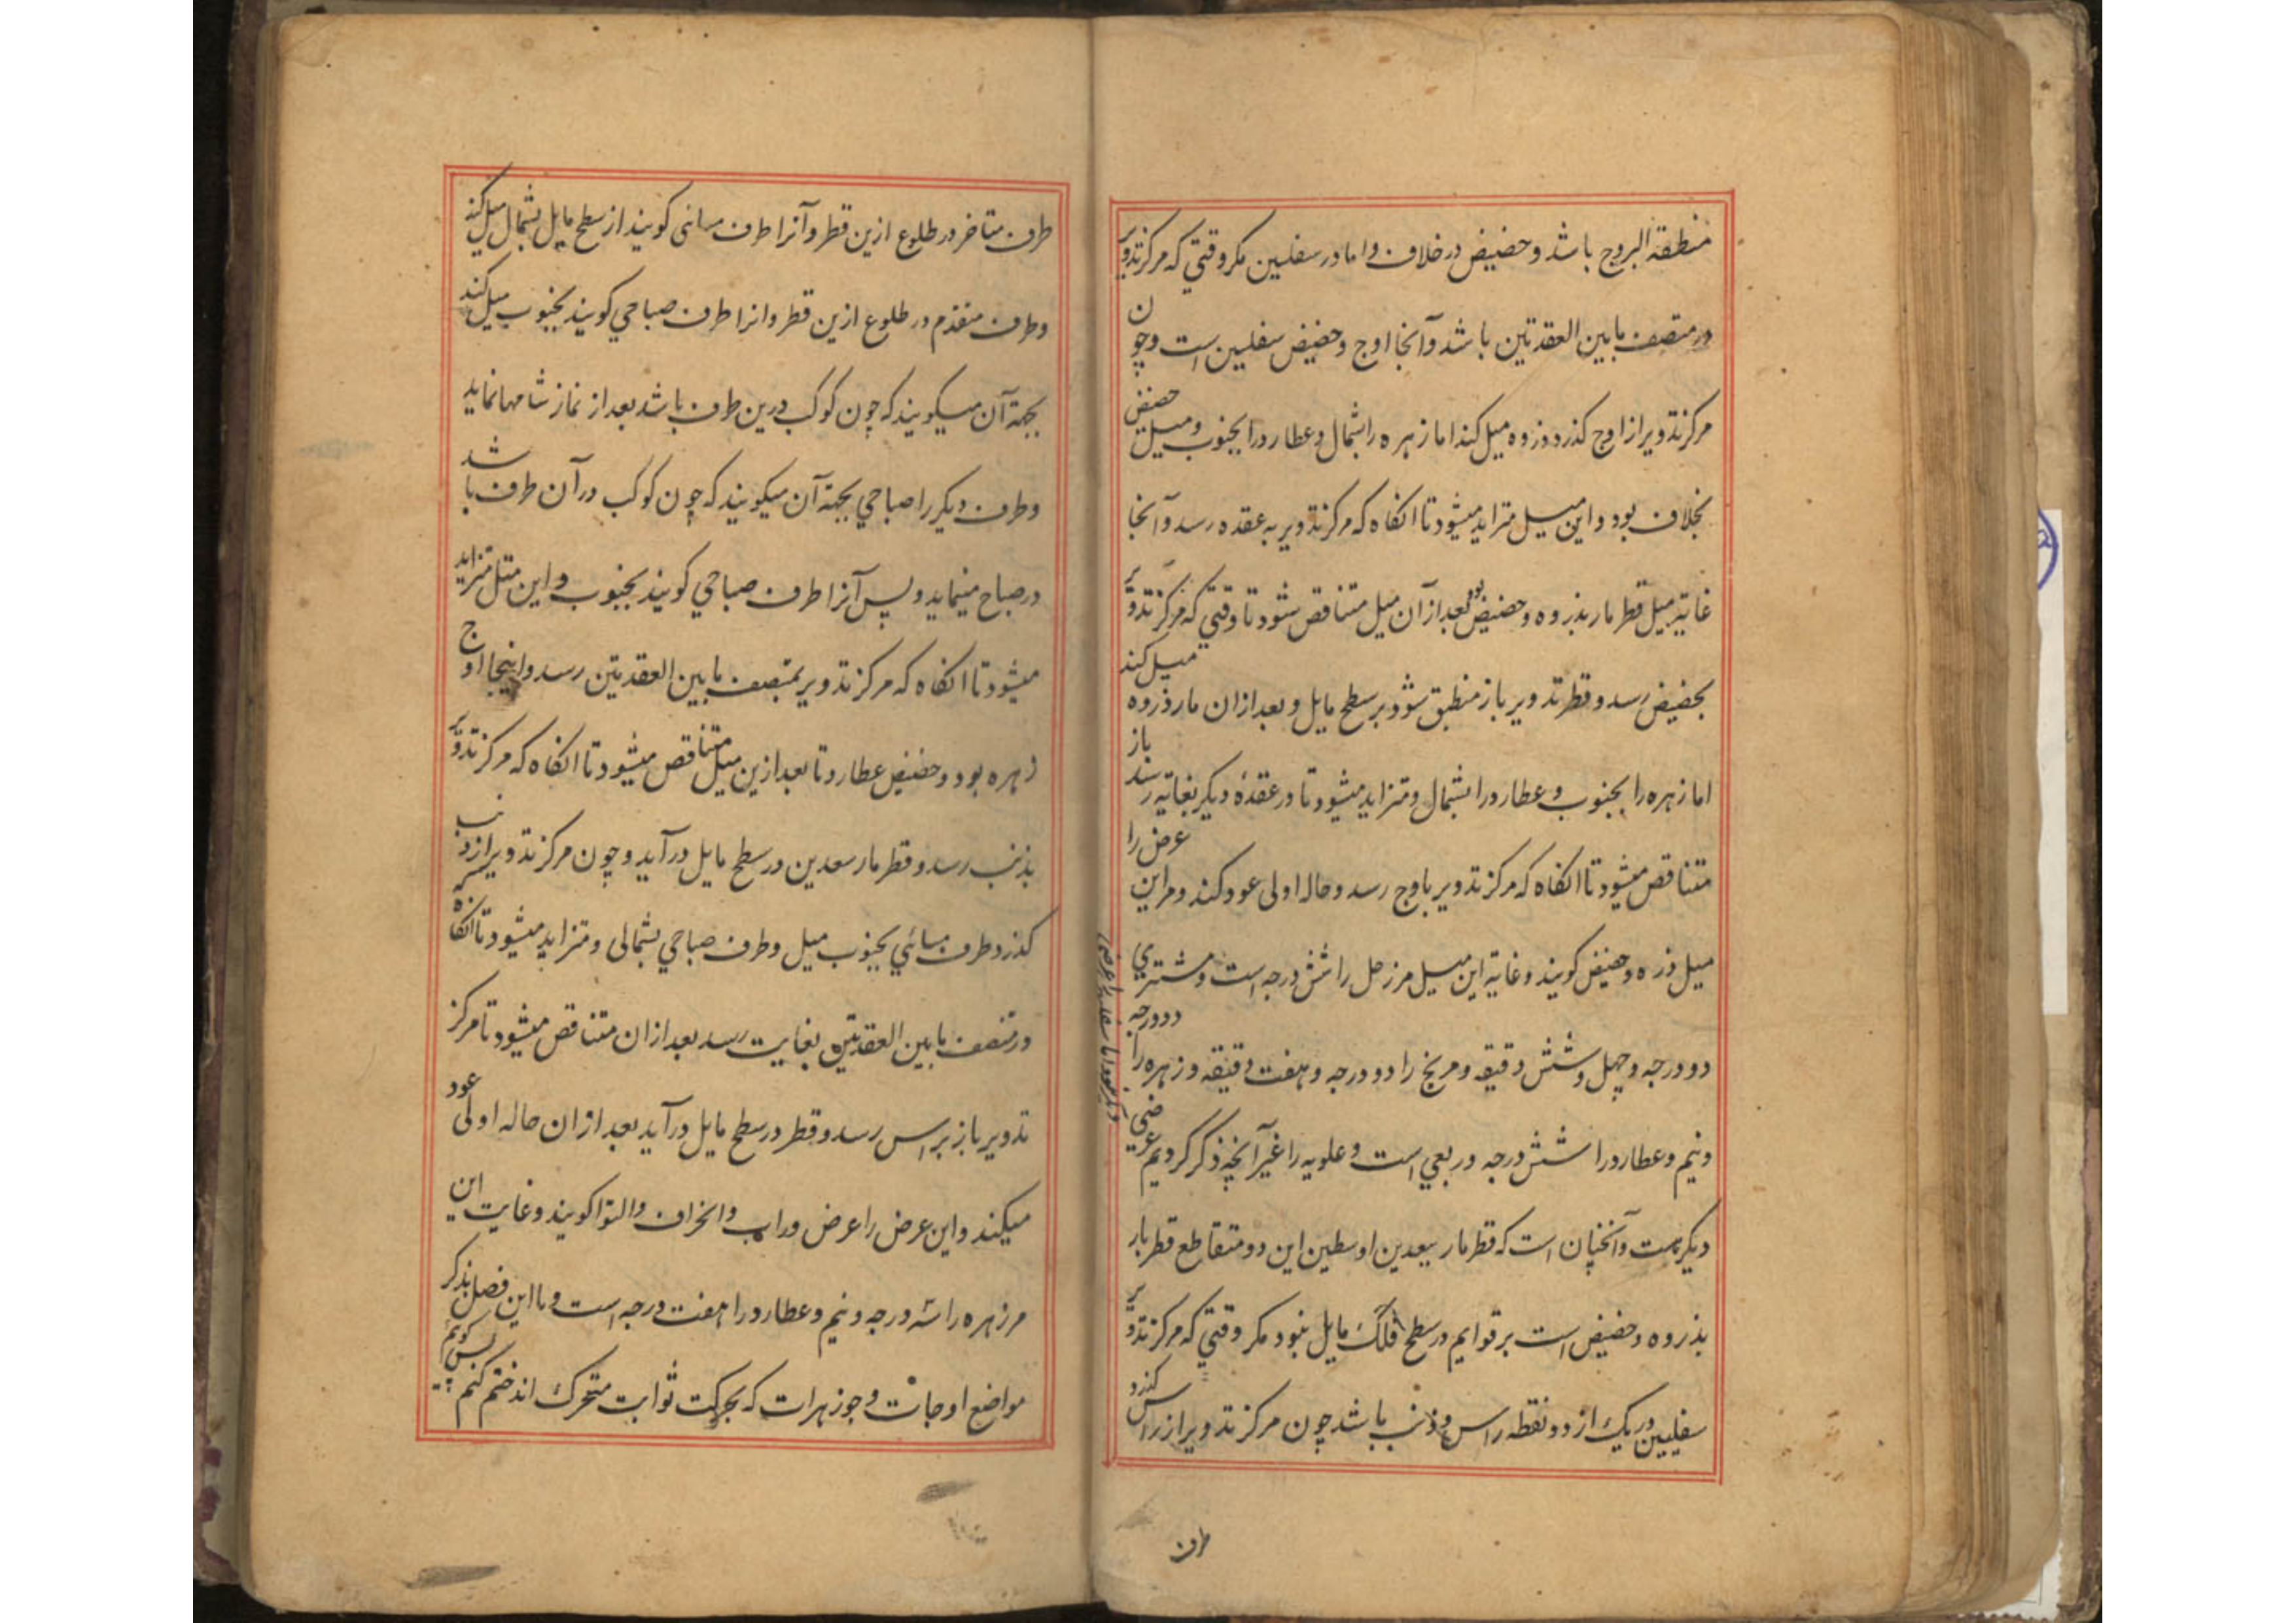 منطقة البروج باشد و حضیض در خلاف و اما در سفلیین مکر وقتی که مرکز تدویر
در منتصف مابین العقدتین باشد و آنجا اوج و حضیض سفلیین است و چون
مرکز تدویر از اوج کذرد و ذروه میل کند اما زهره را بشمال و عطارد را بجنوب و میل حضیض
بخلاف بود و این میل متزاید میشود تا انکاه که مرکز تدویر به عقده رسد و آنجا
غایة میل قطر مار بذروه و حضیض بود بعد از آن میل متناقص شود تا وقتی که مرکز تدویر
بحضیض رسد و قطر تدویر باز منطبق شود بر سطح مایل و بعد ازان مار ذروه میل کند
اما زهره را بجنوب و عطارد را بشمال و متزاید میشود تا در عقدهٔ دیکر بغایة رسد باز
متناقص میشود تا انکاه که مرکز تدویر باوج رسد و حاله اولی عود کند و مر این عرض را
میل ذره و حضیض کویند و غایة این میل مر زحل را شش درجه است و مشتری
دو درجه و چهل و شش دقیقه و مریخ را دو درجه و هفت دقیقه و زهره را دو درجه
و نیم و عطارد را شش درجه و ربعی است و علویه را غیر آنچه ذکر کردیم عرضی
دیکر نیست و آنچنان است که قطر مار ببعدین اوسطین این دو متقاطع قطر بار
بذروه و حضیض است بر قوایم در سطح فلک مایل نبود مکر وقتی که مرکز تدویر
سفلیین در یک از دو نقطه راس و ذنب باشد چون مرکز تدویر از راس کذرد
طرف
طرف متاخر در طلوع ازین قطر و آنرا طرف مسائی کویند از سطح مایل بشمال میل کند
و طرف متقدم در طلوع ازین قطر و انرا طرف صباحي کویند بجنوب میل کند
بجهة آن میکویند که چون کوکب درین طرف باشد بعد از نماز شامها نماید
و طرف دیکر را صباحي بجهة آن میکویند که چون کوکب در آن طرف باشد
در صباح مینماید و پس آنرا طرف صباحي کویند بجنوب و این میل متزاید
میشود تا انکاه که مرکز تدویر بمنتصف مابین العقدتین رسد و اینجا اوج
زهره بود و حضیض عطارد تا بعد ازین میل متناقص میشود تا انکاه که مرکز تدویر
بذنب رسد و قطر مار سعدین در سطح مایل درآید و چون مرکز تدویر از ذنب
کذرد طرف مسائي بجنوب میل و طرف صباحي بشمالی و متزاید میشود تا انکاه که
در منتصف مابین العقدتین بغایت رسد بعد ازان متناقص میشود تا مرکز
تدویر باز براس رسد و قطر در سطح مایل درآید بعد ازان حاله اولی عود
میکند و این عرض را عرض وراب و انحراف و التوا کویند و غایت این
مر زهره را سه درجه و نیم و عطارد را هفت درجه است و ما این فصل بذکر
مواضع اوجات و جوزهرات که بحرکت ثوابت متحرک اند ختم کنیم پس کویم